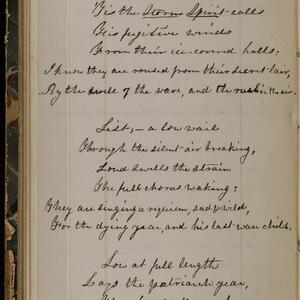 'Tis the Storm Spirit - calls
His fugitive winds
From their ice-covered halls;
I know they are roused from their secret lair,
By the swell of the wave, and the rush in the air.
List, - a low wail
Through the silent air breaking,
Loud swells the strain
The full chorus waking:
They are singing a requiem, sad, wild,
For the dying year, and his last wan child.
Low at full length
Lays the patriarch year,